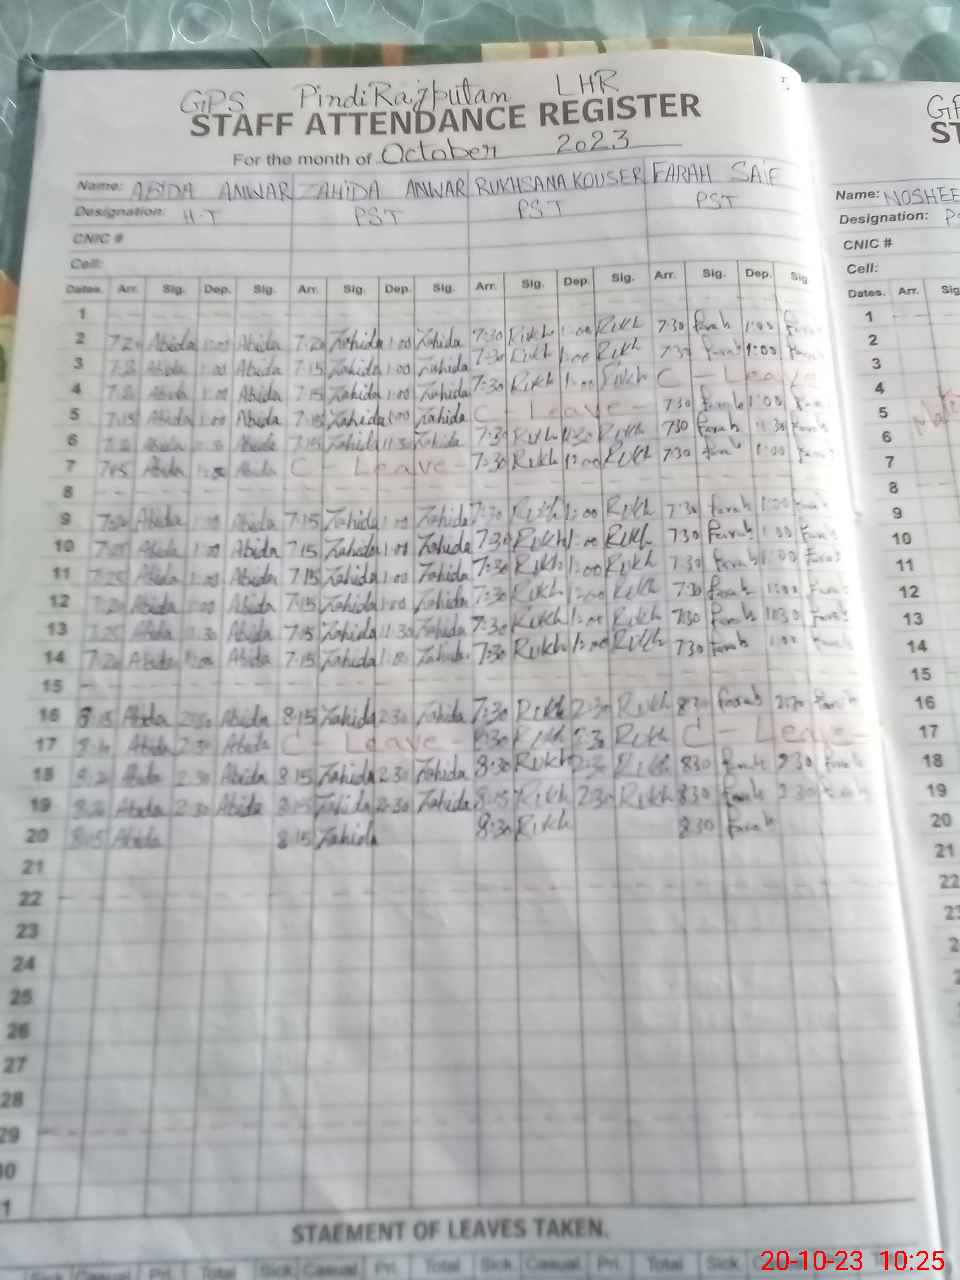 GPS Pindi Rajputan LHR
STAFF ATTENDANCE REGISTER
For the month of October 2023
Name: ABIDA ANWAR ZAHIDA ANWAR RUKHSANA KOUSER FARAH SAIF
Designation: H.T PST PST PST
CNIC #
Cell:
Dates. Arr. Sig. Dep. Sig. Arr. Sig. Dep. Sig. Arr. Sig. Dep. Sig. Arr. Sig. Dep. Sig.
1
2 7:20 Abida 1:00 Abida 7:20 Zahida 1:00 Zahida 7:30 Rukh 1:00 Rukh 7:30 Farah 1:00
3 Abida 1:00 Abida 7:15 Zahida 1:00 Zahida 7:30 Rukh 1:00 Rukh 7:30 Farah 1:00
4 Abida 1:00 Abida 7:15 Zahida 1:00 Zahida 7:30 Rukh 1:00 Rukh C - Leave
5 7:15 Abida 1:00 Abida 7:15 Zahida 1:00 Zahida C - Leave - 7:30 Farah 1:00
6 Abida Abida 7:15 Zahida 11:30 Zahida 7:30 Rukh 11:30 Rukh 7:30 Farah 11:30 Farah
7 Abida Abida C - Leave - 7:30 Rukh 1:00 Rukh 7:30 Farah 1:00 Farah
8
9 7:20 Abida 1:00 Abida 7:15 Zahida 1:00 Zahida 7:30 Rukh 1:00 Rukh 7:30 Farah 1:00 Farah
10 Abida 1:00 Abida 7:15 Zahida 1:00 Zahida 7:30 Rukh 1:00 Rukh 7:30 Farah 1:00 Farah
11 7:25 Abida 1:00 Abida 7:15 Zahida 1:00 Zahida 7:30 Rukh 1:00 Rukh 7:30 Farah 1:00 Farah
12 7:20 Abida 1:00 Abida 7:15 Zahida 1:00 Zahida 7:30 Rukh 1:00 Rukh 7:30 Farah 1:00 Farah
13 7:25 Abida 11:30 Abida 7:15 Zahida 11:30 Zahida 7:30 Rukh Rukh 7:30 Farah Farah
14 7:20 Abida 1:00 Abida 7:15 Zahida 1:00 Zahida 7:30 Rukh 1:00 Rukh 7:30 Farah 1:00 Farah
15
16 8:15 Abida 2:30 Abida 8:15 Zahida 2:30 Zahida 7:30 Rukh 2:30 Rukh 8:30 Farah 2:30 Farah
17 Abida 2:30 Abida C - Leave - 8:30 Rukh 2:30 Rukh C - Leave -
18 8:20 Abida 2:30 Abida 8:15 Zahida 2:30 Zahida 8:30 Rukh 2:30 Rukh 8:30 Farah 2:30 Farah
19 8:20 Abida 2:30 Abida 8:15 Zahida 2:30 Zahida 8:15 Rukh 2:30 Rukh 8:30 Farah 2:30 Farah
20 8:15 Abida 8:15 Zahida 8:30 Rukh 8:30 Farah
21
22
23
24
25
26
27
28
29
STAEMENT OF LEAVES TAKEN.
Sick Casual Pri. Total Sick Casual Pri. Total Sick Casual Pri. Total Sick Casual
Name: NOSHEE
Designation:
CNIC #
Cell:
Dates. Arr.
1
2
3
4
5
6
7
8
9
10
11
12
13
14
15
16
17
18
19
20
21
22
20-10-23 10:25